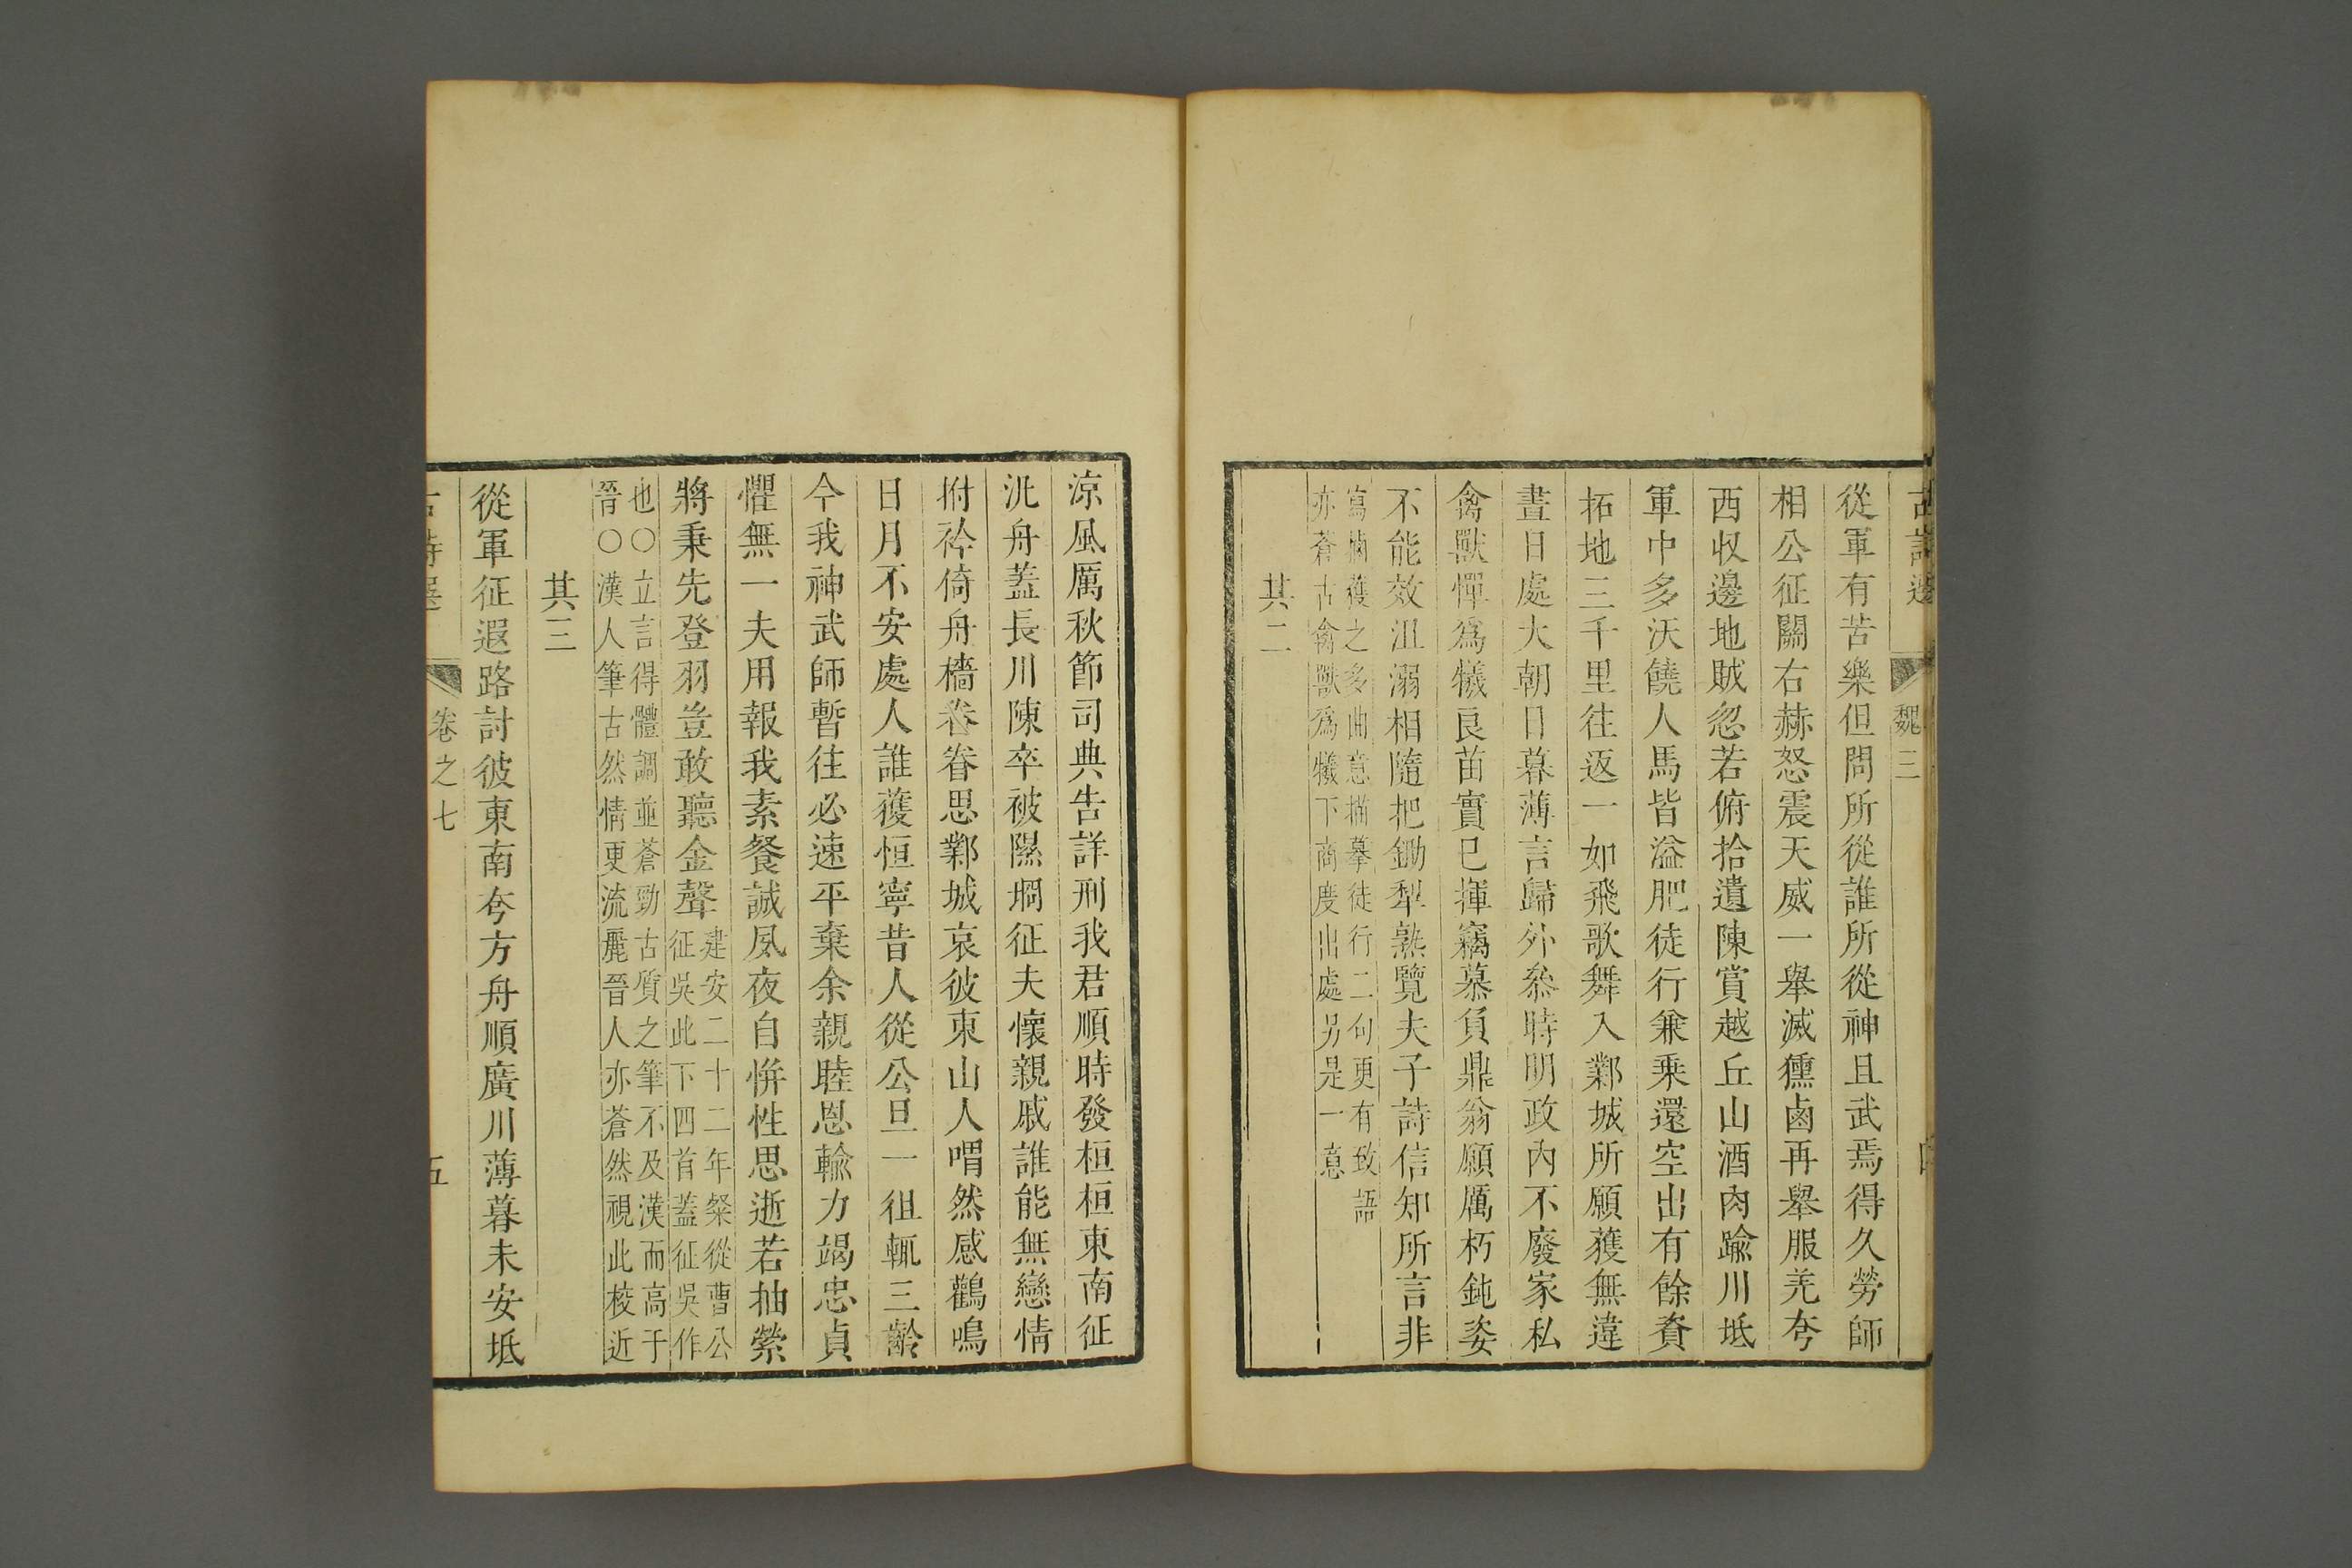 魏三
從軍有苦樂但問所從誰所從神且武焉得久勞師
相公征關右赫怒震天威一舉滅獯鹵再舉服羌夸
西収邊地賊忽若俯拾遺陳賞越丘山酒肉踰川坻
軍中多沃饒人馬皆溢肥徒行兼乗還空出有餘資
拓地三千里往返一如飛歌舞入鄴城所願獲無違
晝日處大朝日暮薄言歸外叅時明政內不廢家私
禽獸憚爲犧良苗實已揮竊慕負鼎翁願厲朽鈍姿
不能效沮溺相隨把鋤犁熟覽夫子詩信知所言非
寫擄獲之多曲意描摹徒行二句更有致語
亦蒼古禽獸爲犧下商度出處另是一意
其二
涼風厲秋節司典告詳刑我君順時發桓桓東南征
汎舟蓋長川陳卒被隰坰征夫懷親戚誰能無戀情
拊衿倚舟檣眷眷思鄴城哀彼東山人喟然感鸛鳴
日月不安處人誰獲恒寧昔人從公旦一徂輒三齡
今我神武師暫往必速平棄余親睦恩輸力竭忠貞
懼無一夫用報我素餐誠夙夜自恲性思逝若抽縈
將秉先登羽豈敢聽金聲
建安二十二年粲從曹公
征吳此下四首蓋征吳作
也○立言得體調並蒼勁古質之筆不及漢而高于
晉○漢人筆古然情更流麗晉人亦蒼然視此棱近
其三
從軍征遐路討彼東南夸方舟順廣川薄暮未安坻
卷之七
五